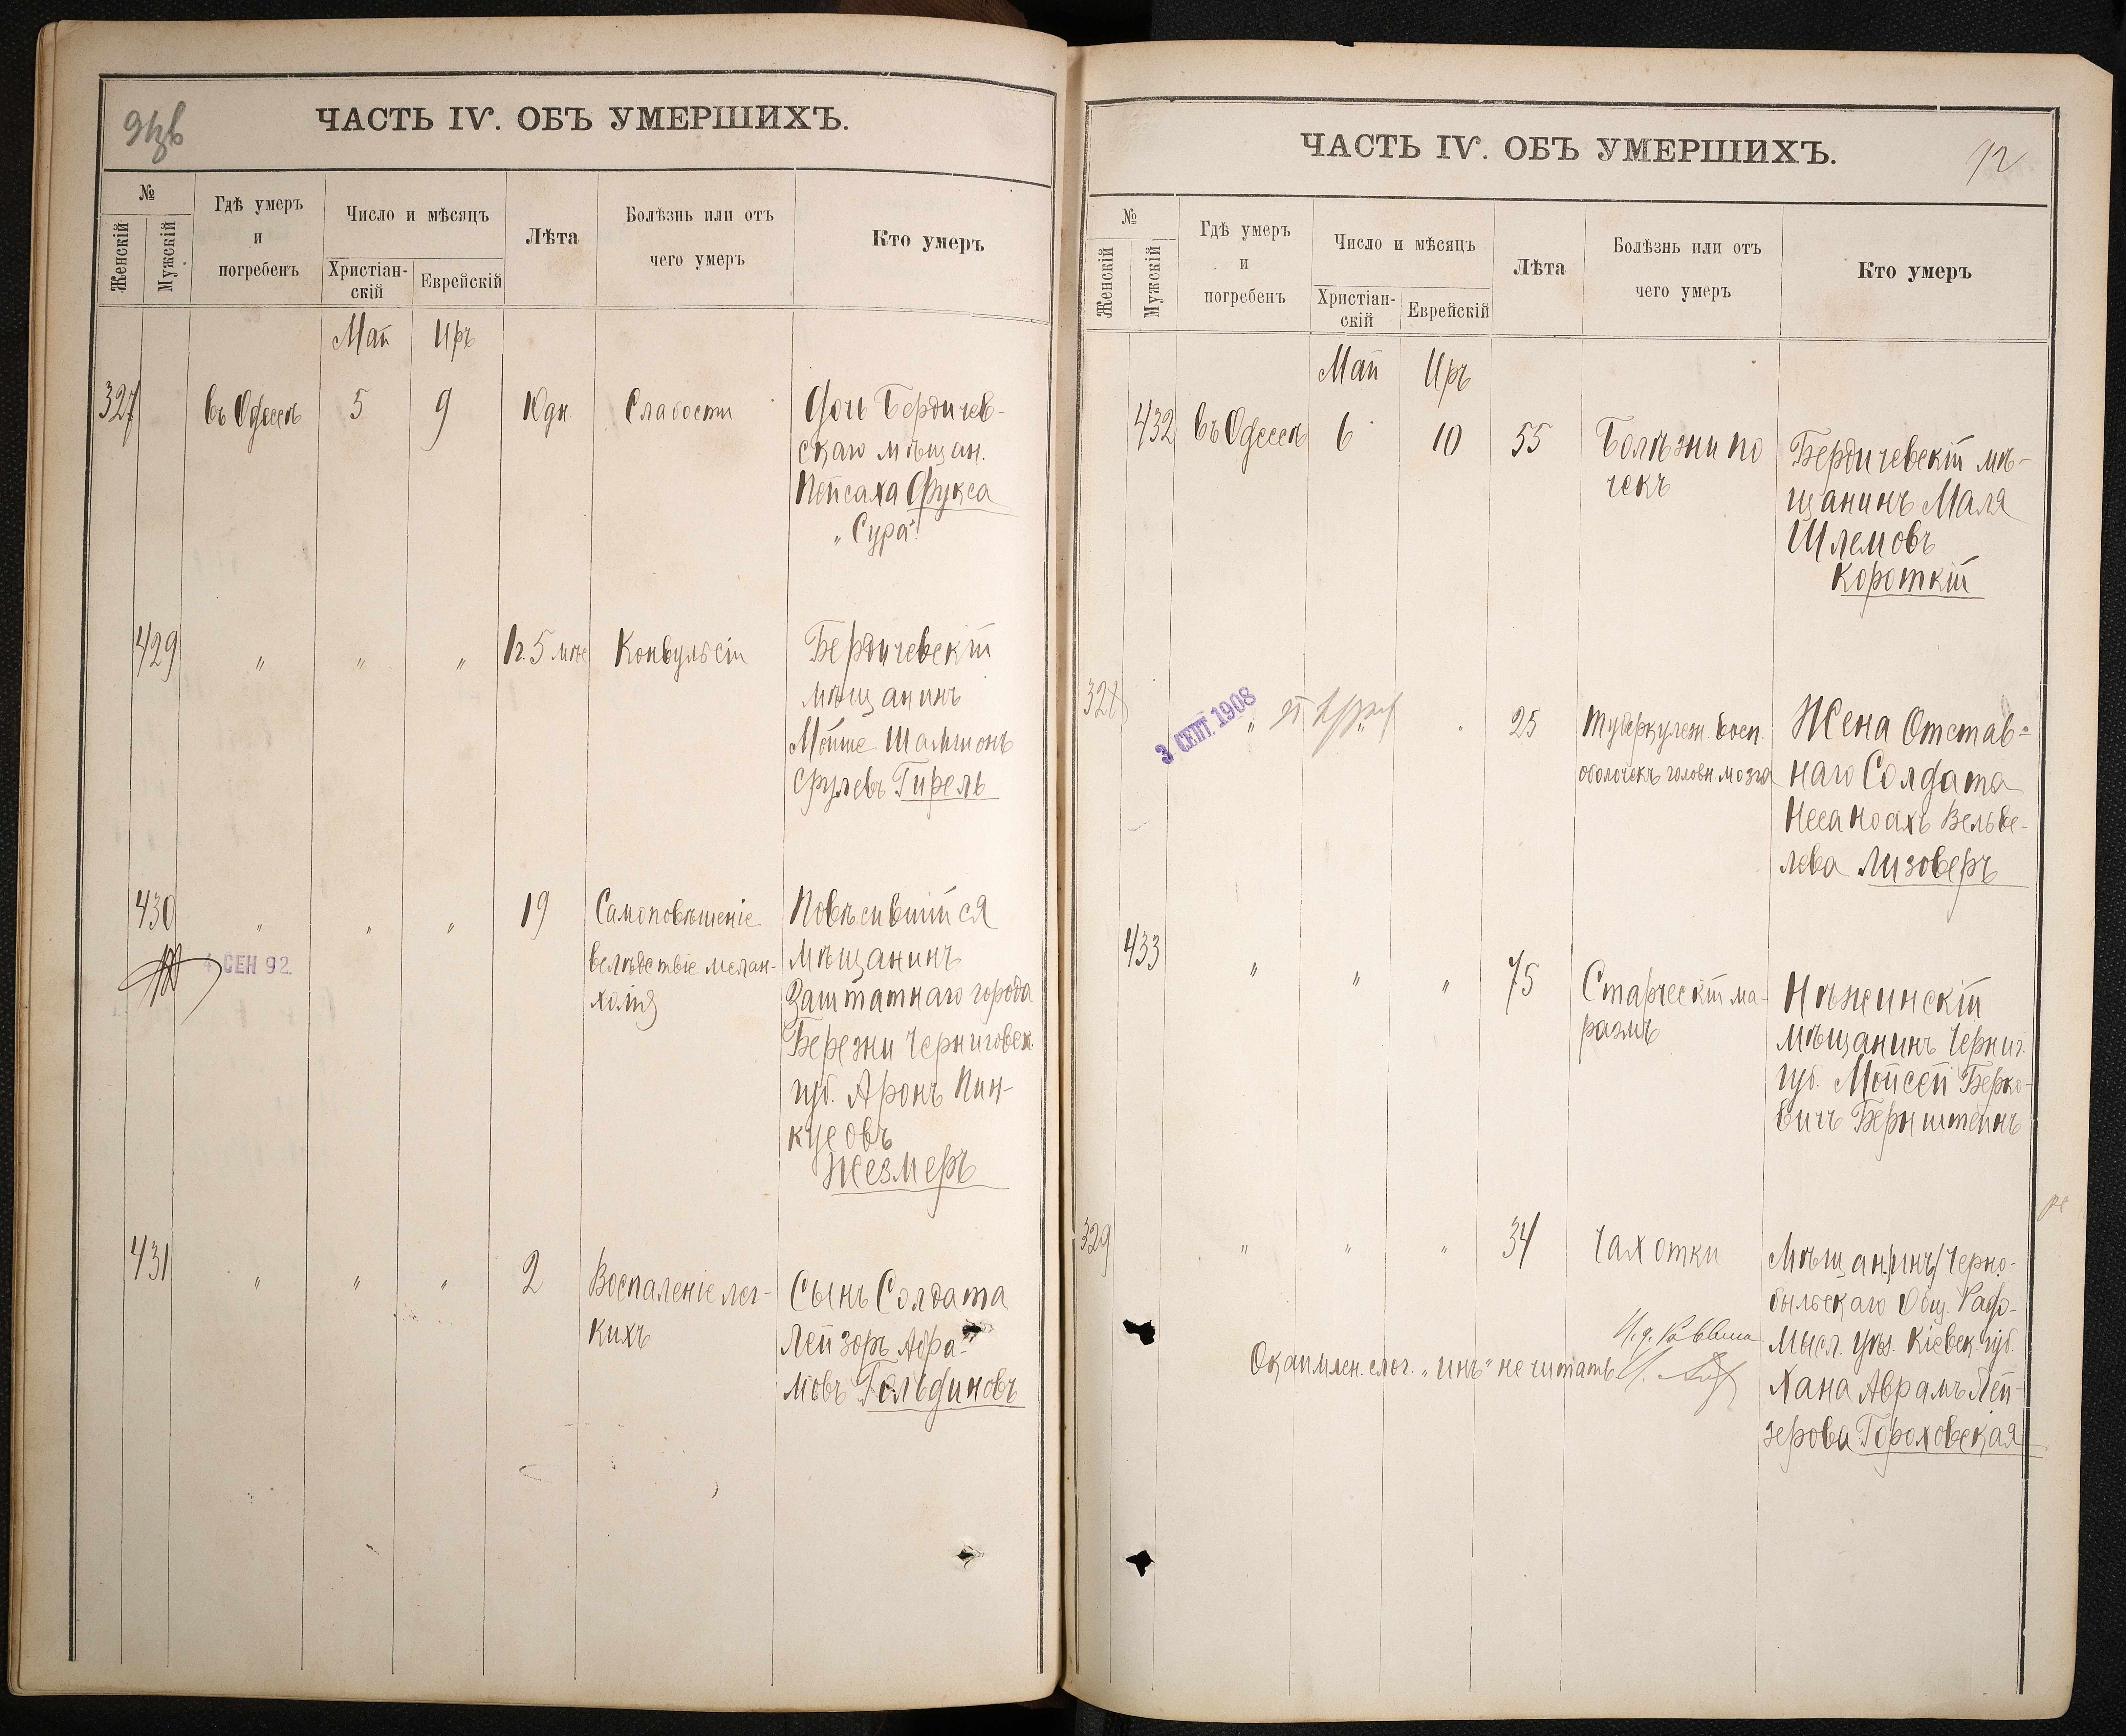 ЧАСТЬ IV. ОБЪ УМЕРШИХЪ.
№
Женскій
Мужскій
Гдѣ умеръ
и
погребенъ
Число и мѣсяцъ
Христіан-
скій
Еврейскій
Лѣта
Болѣзнь или отъ
чего умеръ
Кто умеръ
Май Иръ
327 въ Одессѣ 5 9 10 дн. Слабости
Дочь Бердичев-
скаго мѣщан.
Пейсаха Фукса
„Сура“
429 „ „ „ 1 г. 5 мѣс Конвульсіи
Бердичевскій
мѣщанинъ
Мойше Шальмонъ
Срулевъ Гирель
430 „ „ „ 19
Самоповѣшеніе
вслѣдствіе мелан-
холіи
Повѣсившійся
мѣщанинъ
Заштатнаго города
Березни Черниговск.
губ. Аронъ Пин-
кусовъ
Жезмеръ
4 СЕН 92.
431 „ „ „ 2
Воспаленіе лег-
кихъ
Сынъ Солдата
Лейзоръ Абра-
мовъ Гольдиновъ
ЧАСТЬ IV. ОБЪ УМЕРШИХЪ.
92
№
Женскій
Мужскій
Гдѣ умеръ
и
погребенъ
Число и мѣсяцъ
Христіан-
скій
Еврейскій
Лѣта
Болѣзнь или отъ
чего умеръ
Кто умеръ
Май Иръ
432 въ Одессѣ 6 10 55
Болѣзни по
чекъ
Бердичевскій мѣ-
щанинъ Маля
Шлемовъ
Короткій
328 „ „ „ 25
3 СЕНТ. 1908
Туберкулезн. восп.
оболочекъ головн. мозга
Жена Отстав-
наго Солдата
Неса Ноахъ Вельве-
лева Лизоверъ
433 „ „ „ 75
Старческій ма-
размъ
Нѣжинскій
мѣщанинъ Черниг.
губ. Мойсей Берко-
вичъ Бернштейнъ
329 „ „ „ 34 Чахотки
Мѣщан/инъ/ Черно-
быльскаго Общ. Радо-
мысл. уѣз. Кіевск. губ.
Хана Аврамъ Лей-
зерова Гороховская
Окаймлен. слог. „инъ“ не читать
И. д. Раввина